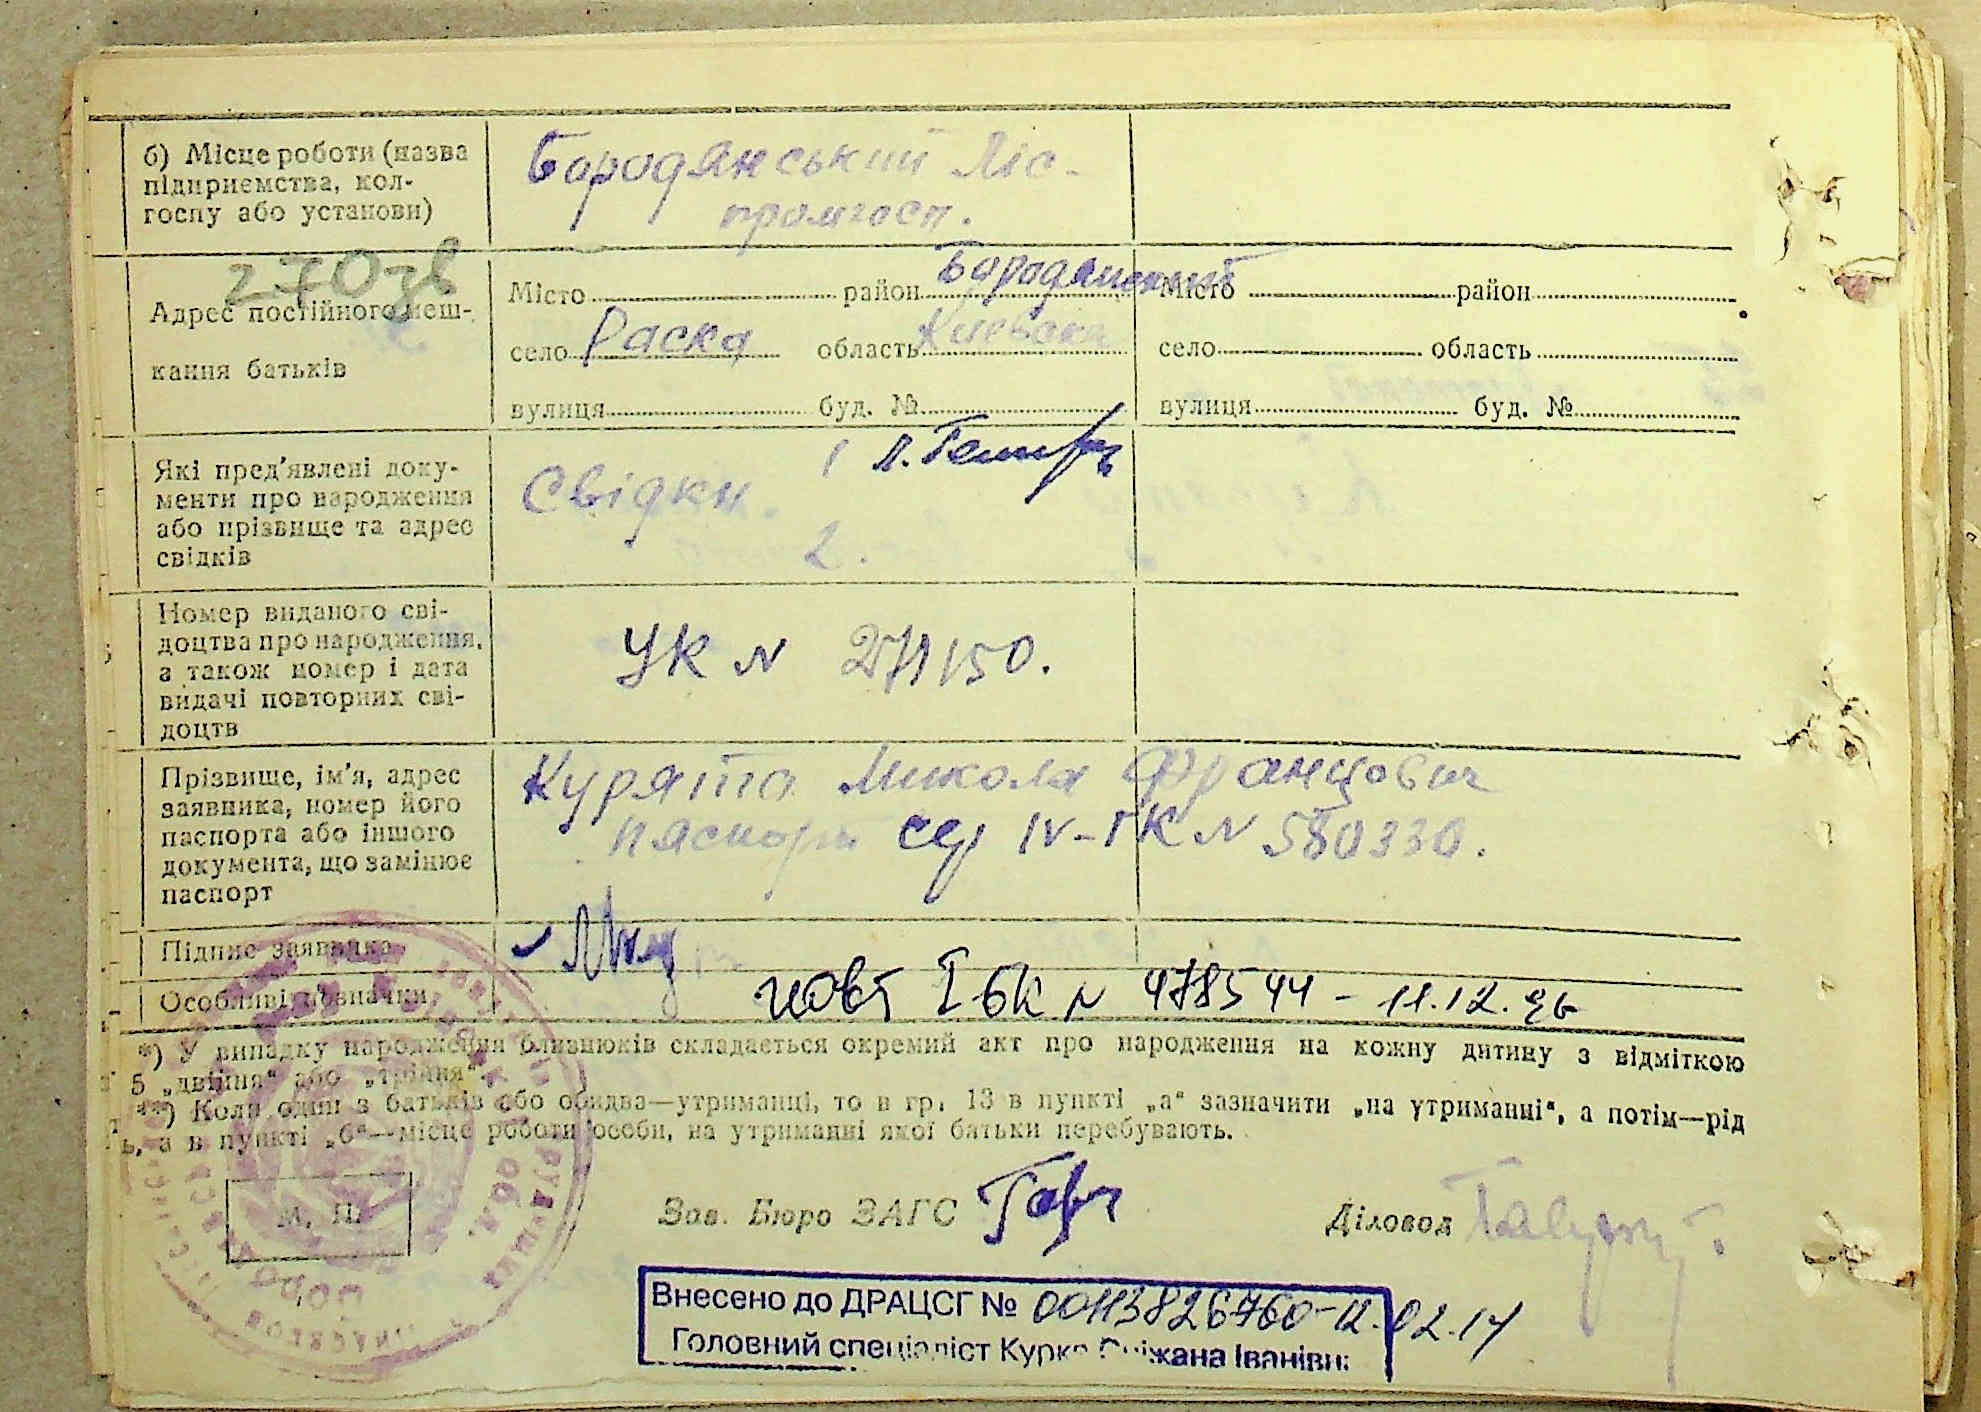 б) Місце роботи (назва
підприємства, кол-
госпу або установи)
Бородянський Ліс-
промгосп.
270зв
Адрес постійного меш-
кання батьків
Місто район Бородянський
село Раска область Київска
вулиця буд. №
Місто район
село область
вулиця буд. №
Які пред'явлені доку-
менти про народження
або прізвище та адрес
свідків
Свідки 1
2.
Номер виданого сві-
доцтва про народження,
а також номер і дата
видачі повторних сві-
доцтв
УК N 271150.
Прізвище, ім'я, адрес
заявника, номер його
паспорта або іншого
документа, що замінює
паспорт
Курята Микола Францович
паспорт сер IV-ГК N 580330.
Підпис заявника
Особливі позначки,
повт I-БК N 478544 - 11.12.96
*) У випадку народження близнюків складається окремий акт про народження на кожну дитину з відміткою
5 „двійня“ або „трійня“.
**) Коли один з батьків або обидва—утриманці, то в гр. 13 в пункті „а“ зазначити „на утриманні“, а потім—рід
ь, а в пункті „б“—місце роботи особи, на утриманні якої батьки перебувають.
М. П.
Зав. Бюро ЗАГС
Діловод
Внесено до ДРАЦСГ № 00113826760-12.02.14
Головний спеціаліст Курко Сніжана Іванівн